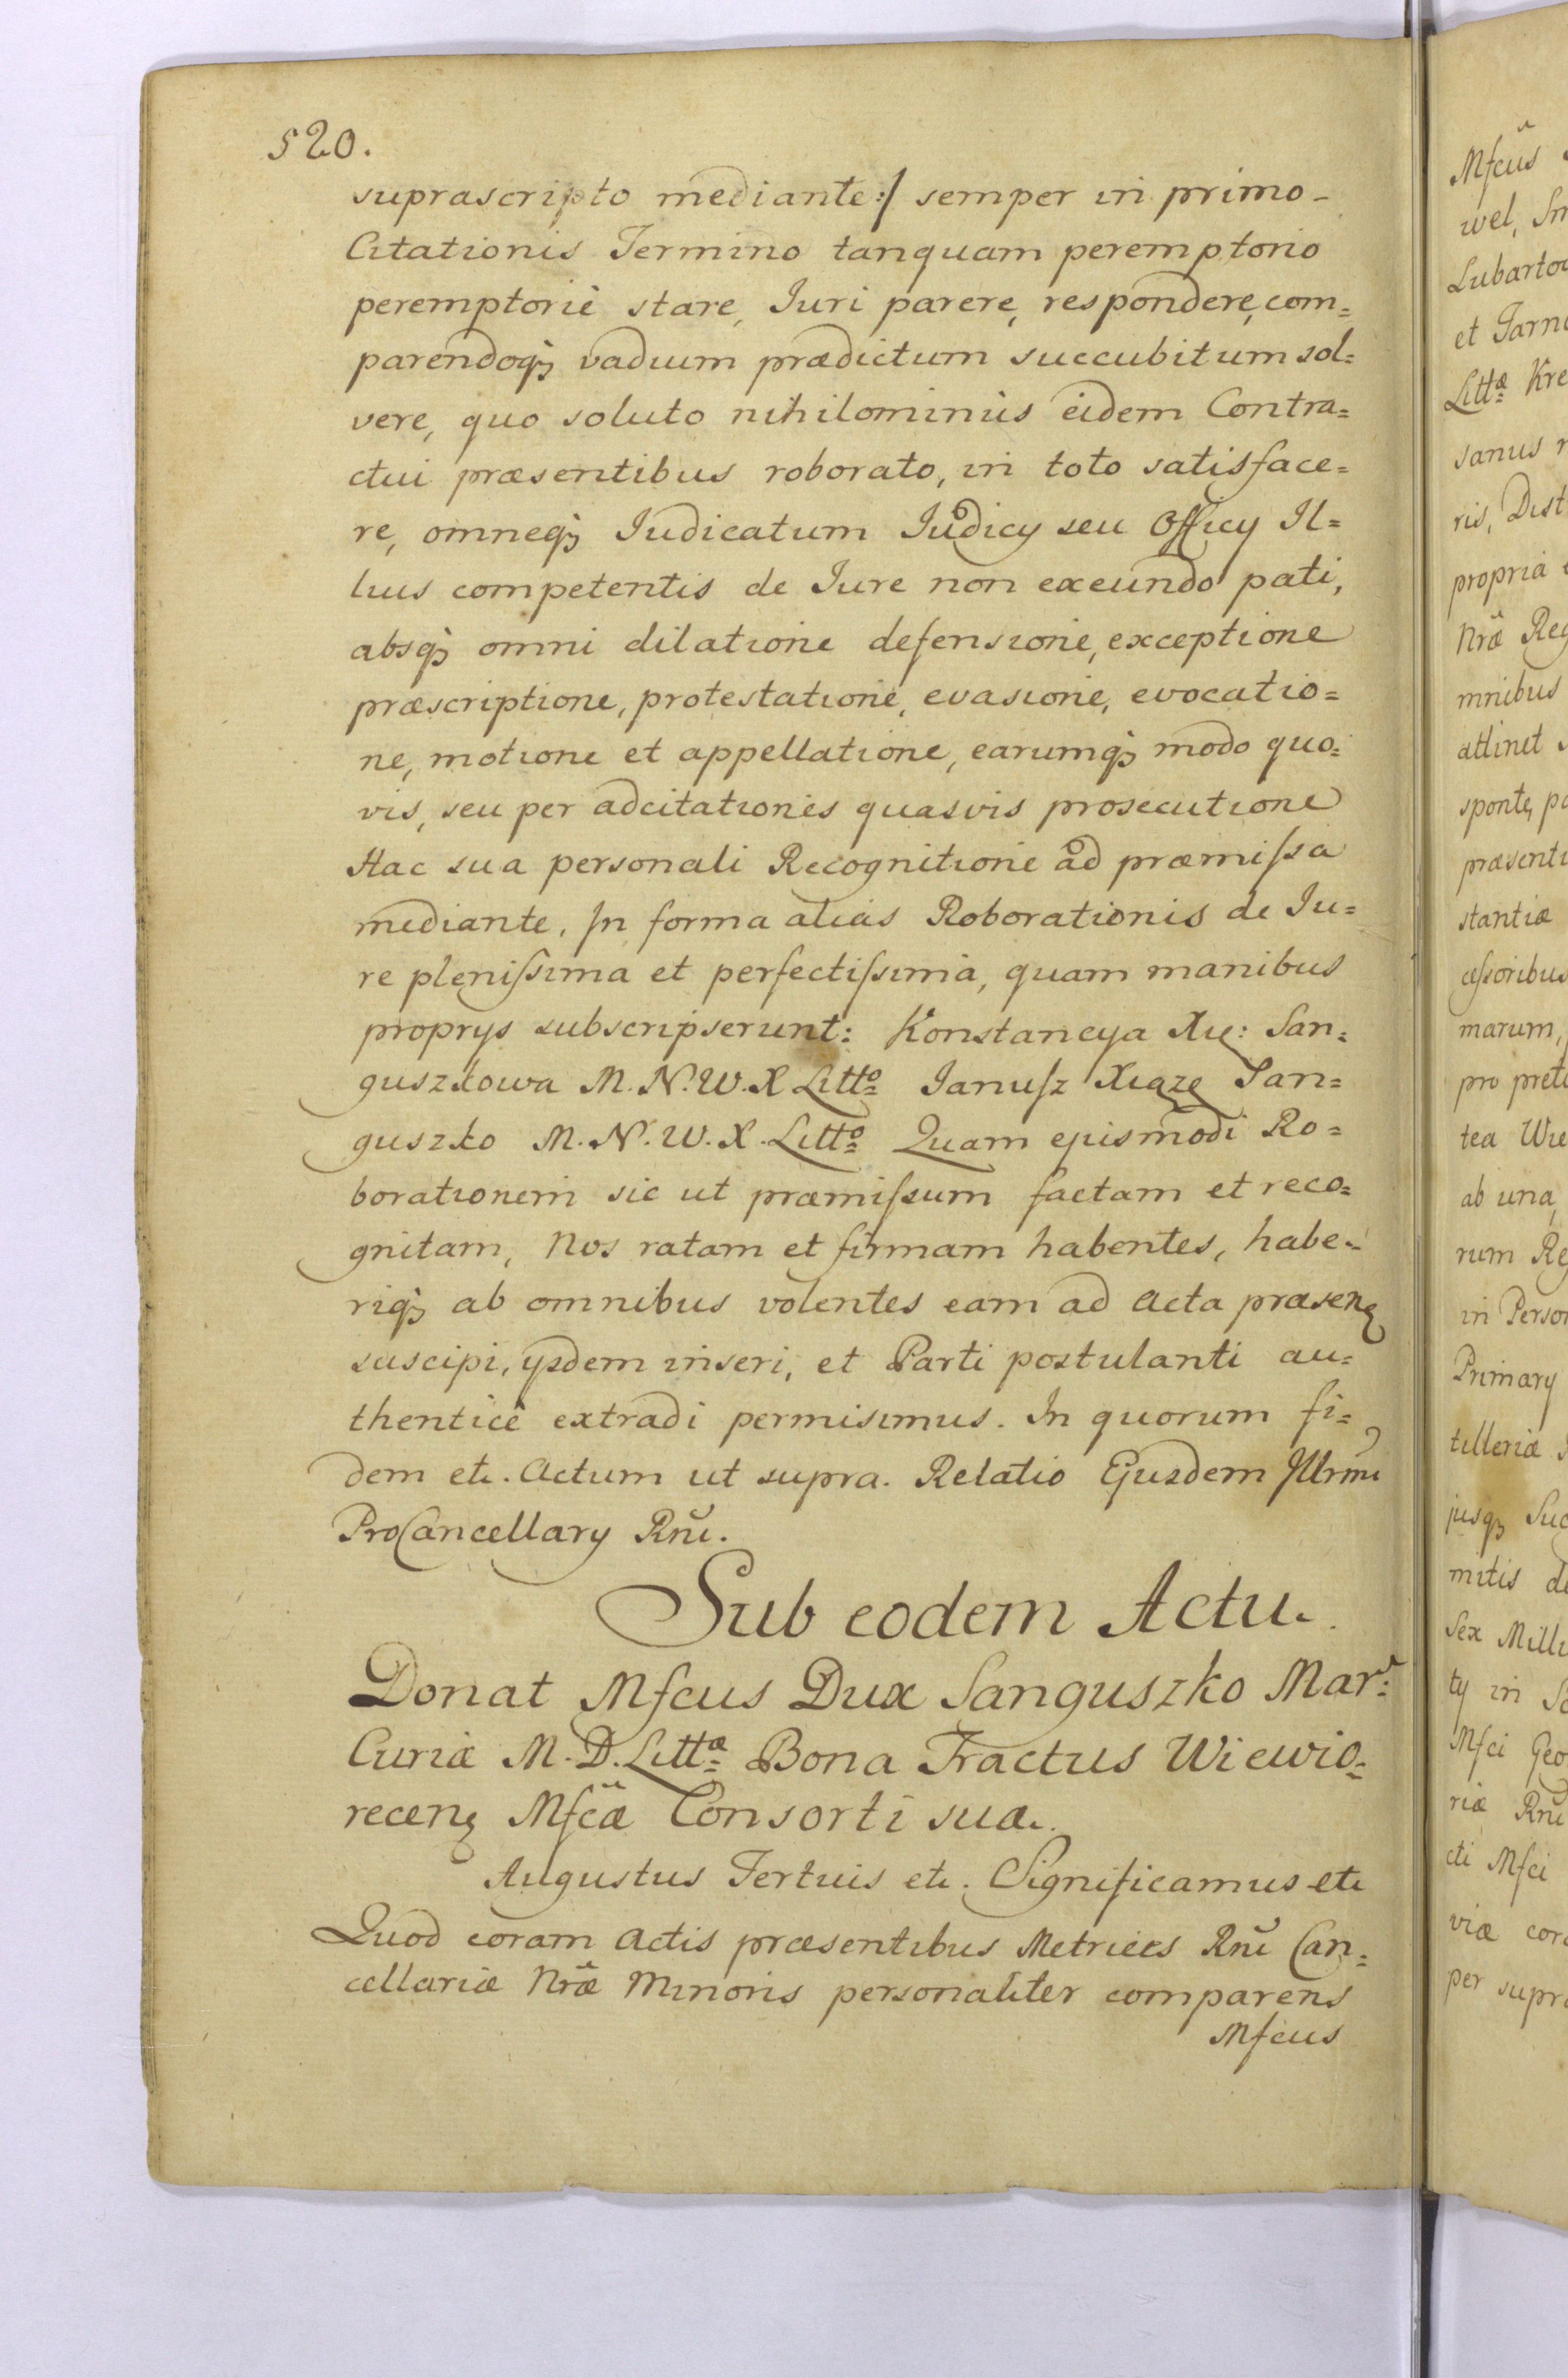 520.
suprascripto mediante:/ semper in primo-
Citationis Termino tanquam peremptorio
peremptoriè stare, Iuri parere, respondere, com=
parendoq̀ꝫ vadium prædictum succubitum sol=
vere, quo soluto nihilominùs eidem Contra=
ctui præsentibus roborato, in toto satisface=
re, omneq̀ꝫ Iudicatum Iudicy seu Officy Il=
lius competentis de Iure non exeundo pati,
absq̀ꝫ omni dilatione defensione, exceptione
præscriptione, protestatione, evasione, evocatio=
ne, motione et appellatione, earumq̀ꝫ modo quo=
vis, seu per adcitationes quasvis prosecutione
Hac sua personali Recognitione ad præmiſsa
mediante, In forma aliàs Roborationis de Iu=
re pleniſsima et perfectiſsima, quam manibus
proprys subscripserunt: Konstancya Xię: San=
guszkowa M. N. W. X Littº Ianuſz Xiąze San=
guszko M. N. W. X. Littº Quam ejusmodi Ro=
borationem sic ut præmiſsum factam et reco=
gnitam, Nos ratam et firmam habentes, habe=
riq̀ꝫ ab omnibus volentes eam ad Acta præsenę
suscipi, ysdem inseri, et Parti postulanti au=
thenticè extradi permisimus. In quorum fi=
dem etc. Actum ut supra. Relatio Ejusdem Illrmi
ProCancellary Rnĩ.
Sub eodem Actu.
Donat Mfcus Dux Sanguszko Marͬ:
Curiæ M. D. Littæ Bona Tractus Wiewio=
recenę Mfcæ Consorti suæ.
Augustus Tertius etc. Significamus etc
Quod coram Actis præsentibus Metrices Rnĩ Can=
cellariæ Nræ̃ Minoris personaliter comparens
Mfcus
Mfcus
wel, Sm
Lubartow
et Tarn
Littæ Kre
sanus
ris, Dist
propria
Nræ̃ Reg
mnibus
attinet
sponte, pa
præsenti
stantiæ
ceſsoribus
marum,
pro preti
tea Wie
ab una,
rum Re
in Person
Primary
tilleriæ
jusq̀ꝫ Suc
mitis de
Sex Milli
ty in Se
Mfci Geo
riæ Rnĩ
cti Mfci
viæ cora
per supra